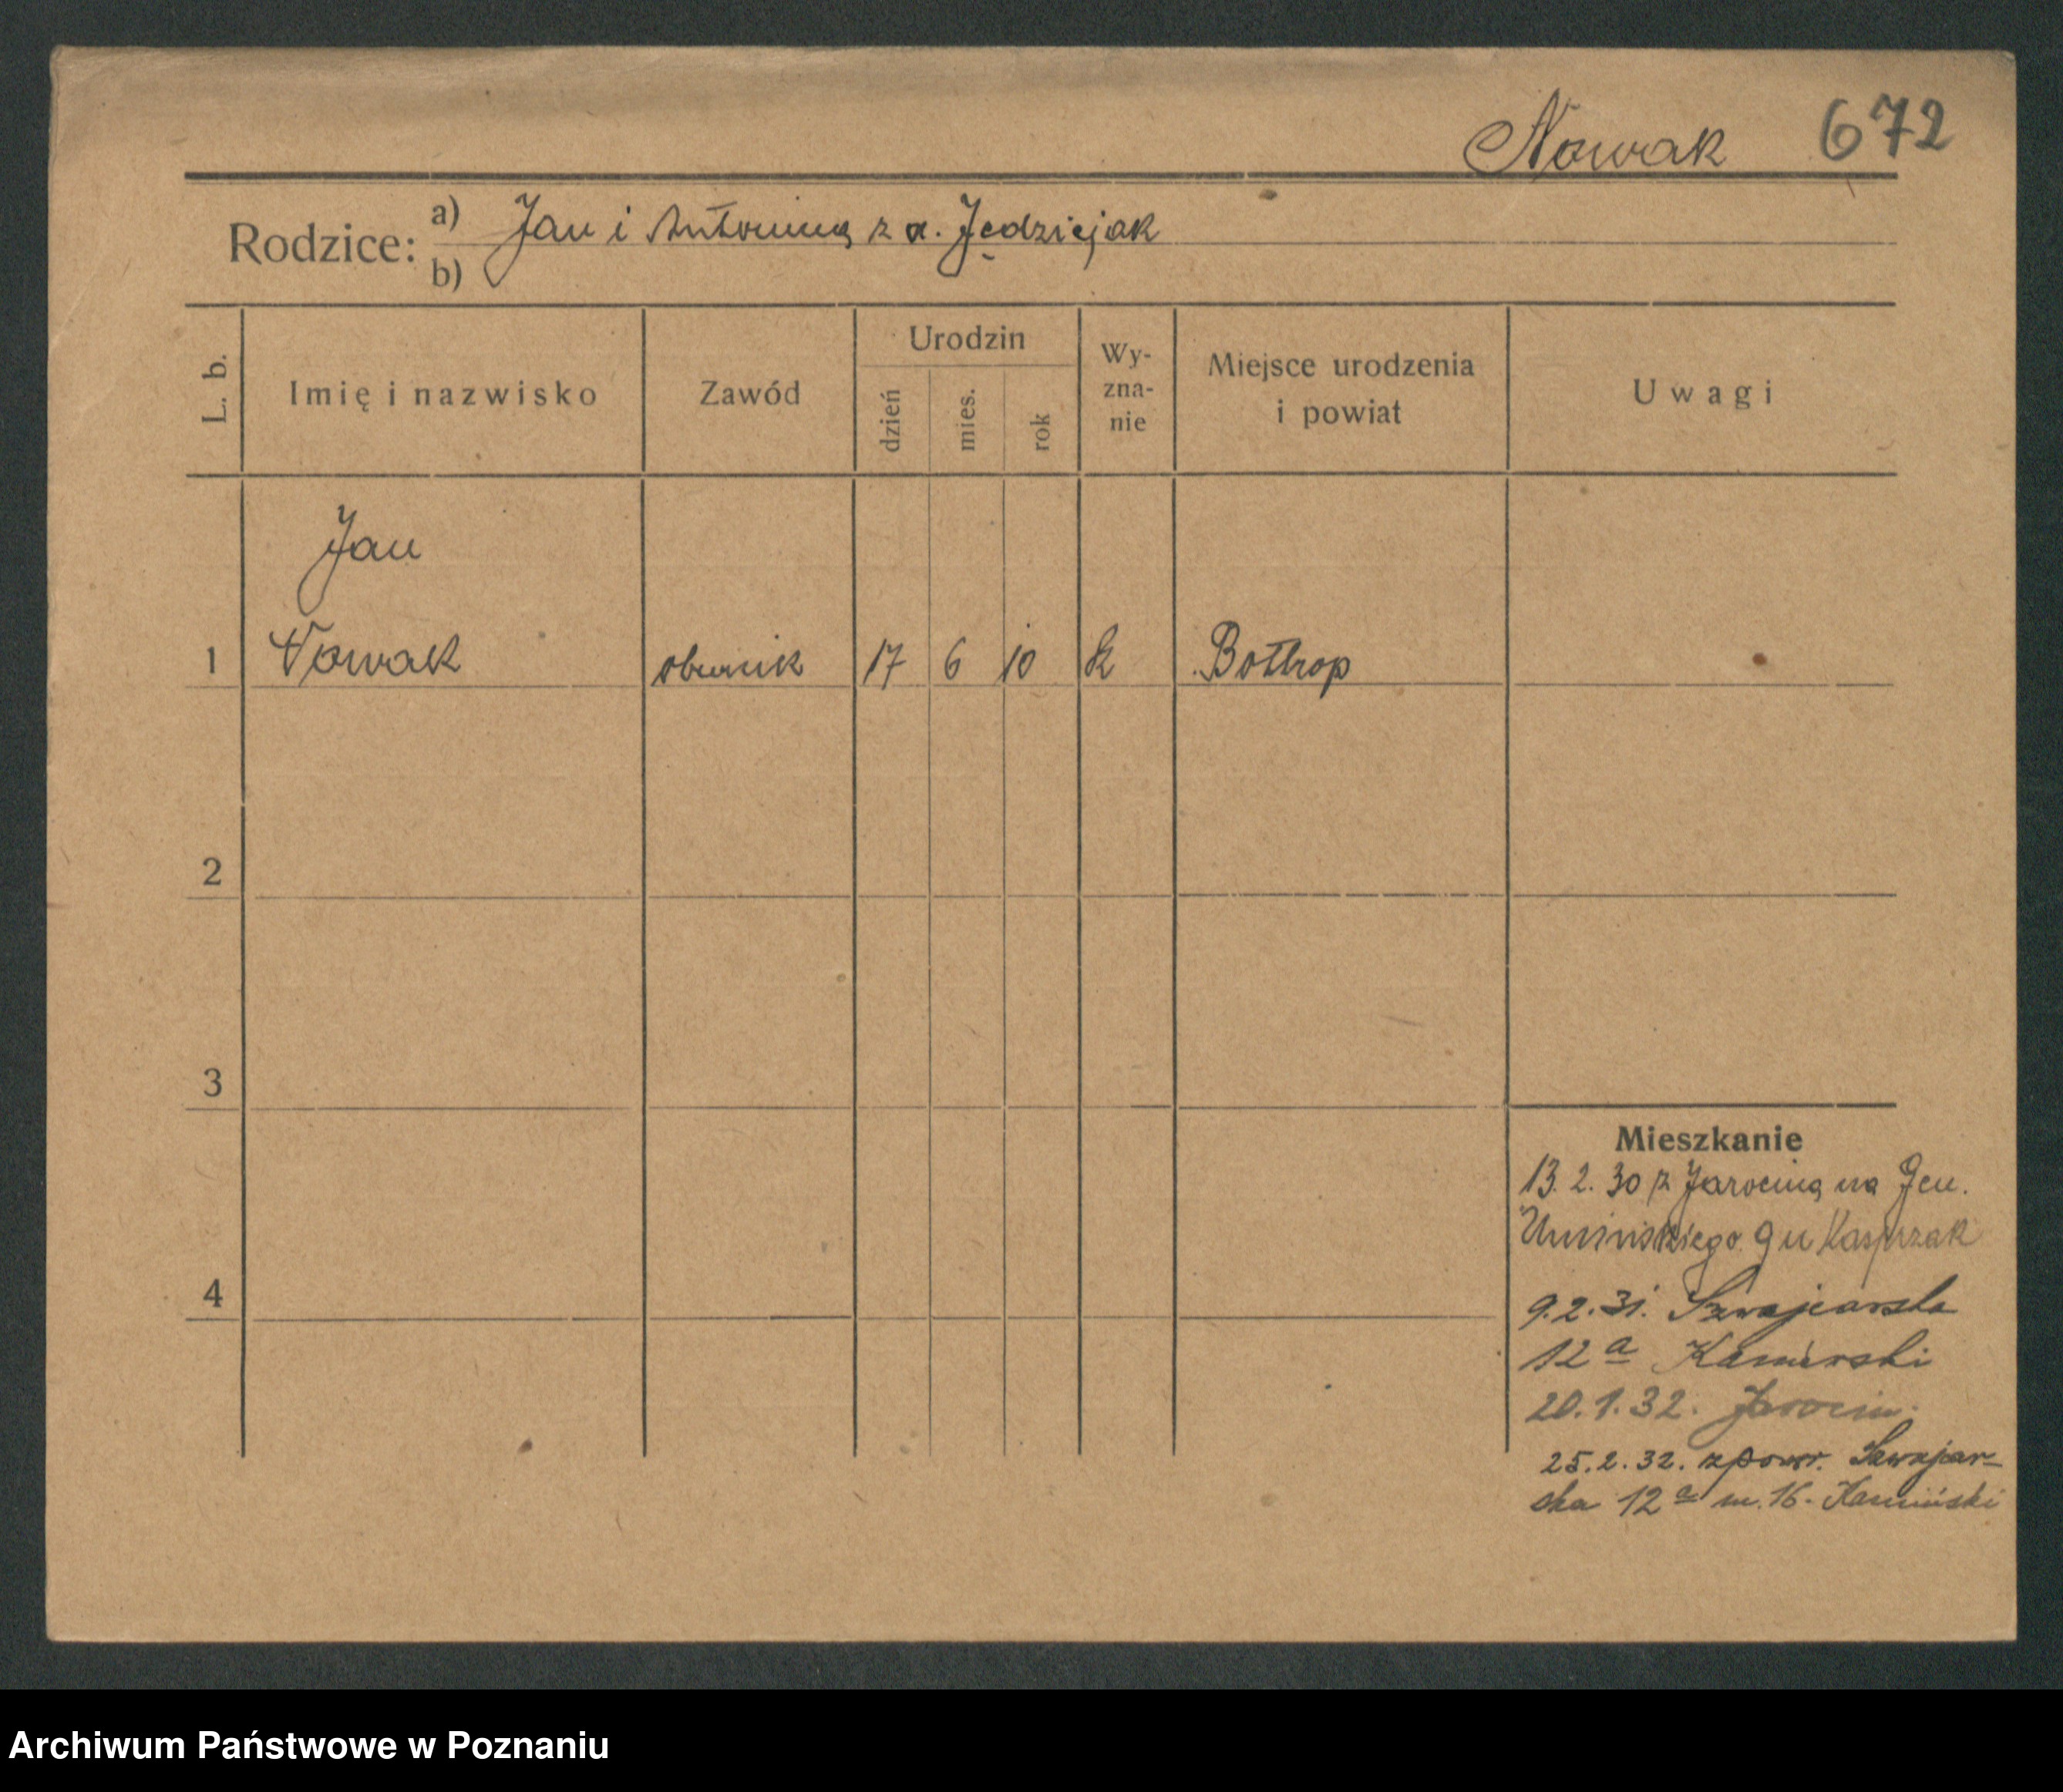 Nowak 672
Rodzice: a) Jan i Antonina z d. Jędziejak
b)
L. b. Imię i nazwisko Zawód Urodzin dzień mies. rok Wy-zna-nie Miejsce urodzenia i powiat Uwagi
Jan
1 Nowak 17 6 10 k Bottrop
2
3
Mieszkanie
13. 2. 30 z Jarocina na Gen.
Umińskiego 9 u Kasprzak
4
9.2.31. Szwajcarska
12a Kamiński
20.1.32. Jarocin.
25.2.32. z powr. Szwajcar-
ska 12a m. 16. Kamiński
Archiwum Państwowe w Poznaniu